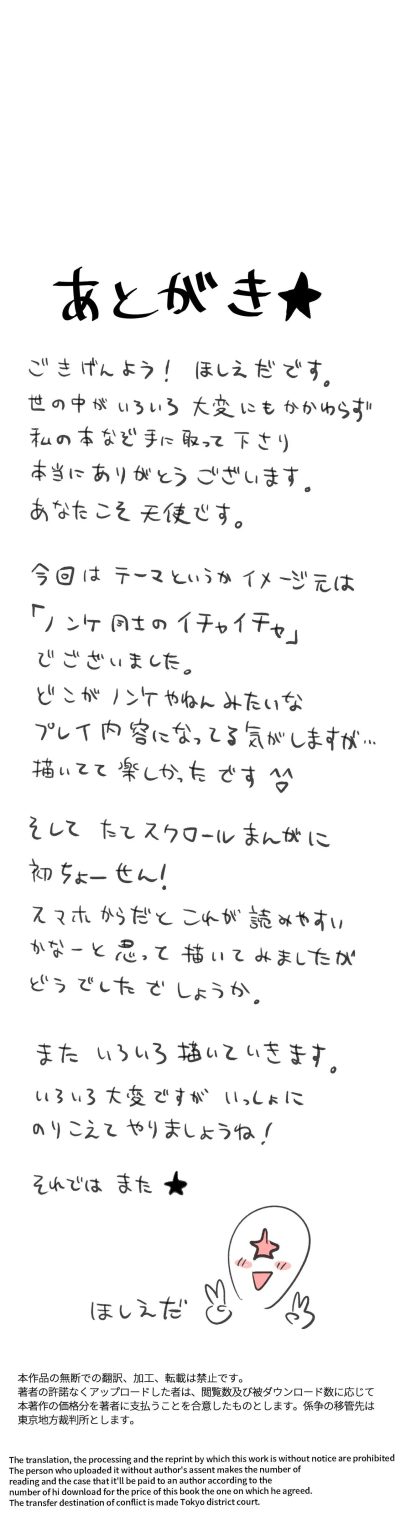 あとがき★
ごきげんよう! ほしえだです。
世の中がいろいろ大変にもかかわらず
私の本なぞ手に取って下さり
本当にありがとうございます。
あなたこそ天使です。
今回はテーマというかイメージ元は
「ノンケ同士のイチャイチャ」
でございました。
どこがノンケやねんみたいな
プレイ内容になってる気がしますが…
描いてて楽しかったです^^
そして たてスクロールまんがに
初ちょーせん!
スマホからだとこれが読みやすい
かなーと思って描いてみましたが
どうでしたでしょうか。
また いろいろ描いていきます。
いろいろ大変ですが いっしょに
のりこえてやりましょうね!
それでは また★
ほしえだ
本作品の無断での翻訳、加工、転載は禁止です。
著者の許諾なくアップロードした者は、閲覧数及び被ダウンロード数に応じて
本著作の価格分を著者に支払うことを合意したものとします。係争の移管先は
東京地方裁判所とします。
The translation, the processing and the reprint by which this work is without notice are prohibited
The person who uploaded it without author's assent makes the number of
reading and the case that it'll be paid to an author according to the
number of hi download for the price of this book the one on which he agreed.
The transfer destination of conflict is made Tokyo district court.